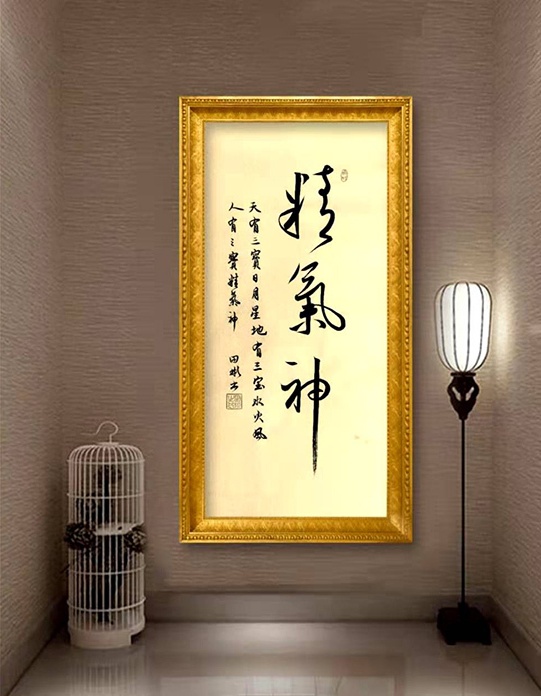 精氣神
天有三寳日月星地有三宝水火風
人有三寳精氣神 田彬书